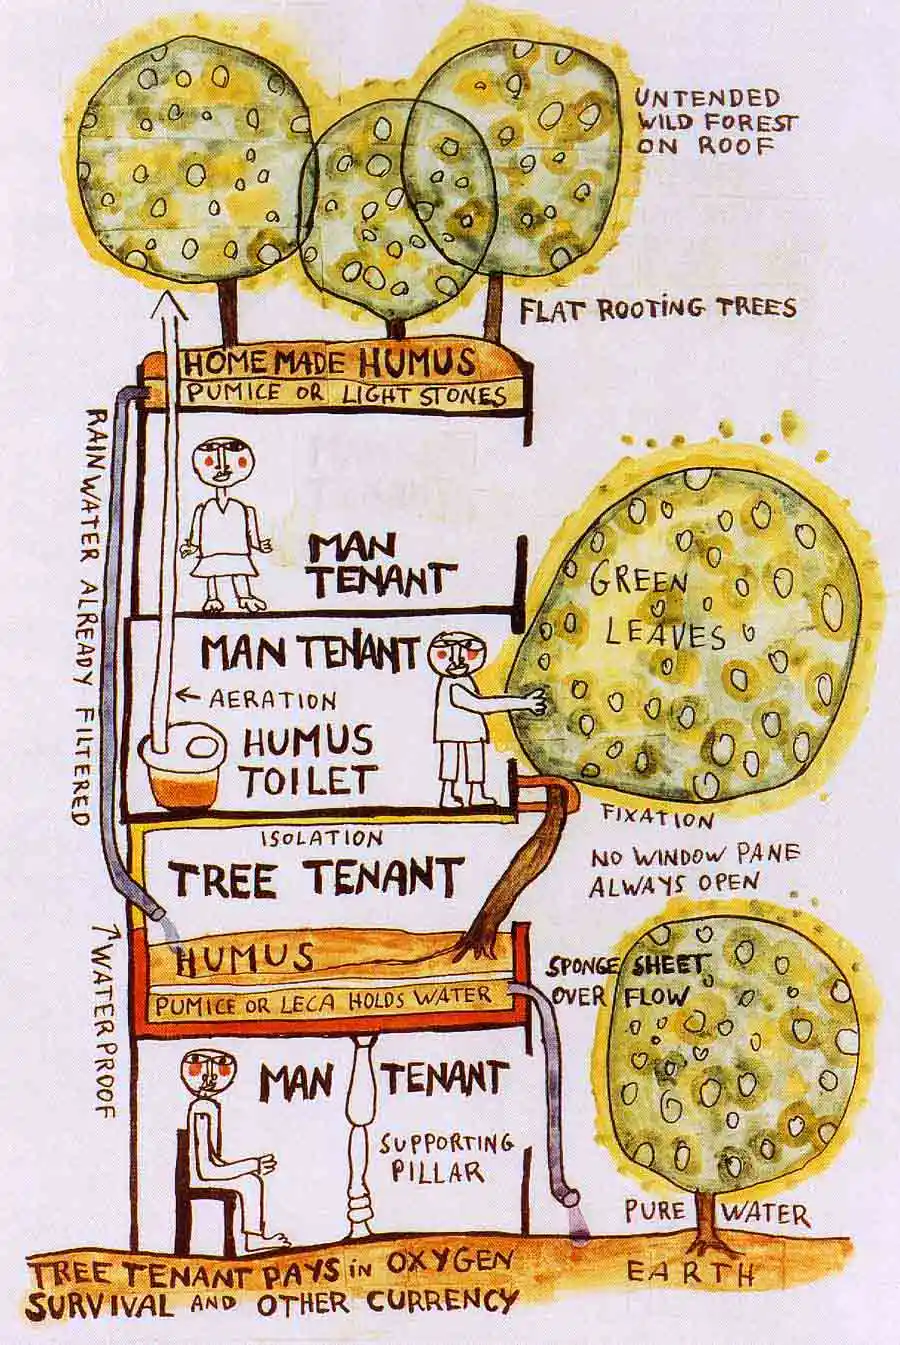 UNTENDED
WILD FOREST
ON ROOF
FLAT ROOTING TREES
HOME MADE HUMUS
PUMICE OR LIGHT STONES
RAIN WATER ALREADY FILTERED
MAN
TENANT
GREEN
LEAVES
MAN TENANT
← AERATION
HUMUS
TOILET
FIXATION
ISOLATION
TREE TENANT
NO WINDOW PANE
ALWAYS OPEN
↑ WATERPROOF
HUMUS
PUMICE OR LECA HOLDS WATER
SPONGE SHEET
OVER FLOW
MAN TENANT
SUPPORTING
PILLAR
PURE WATER
EARTH
TREE TENANT PAYS in OXYGEN
SURVIVAL AND OTHER CURRENCY